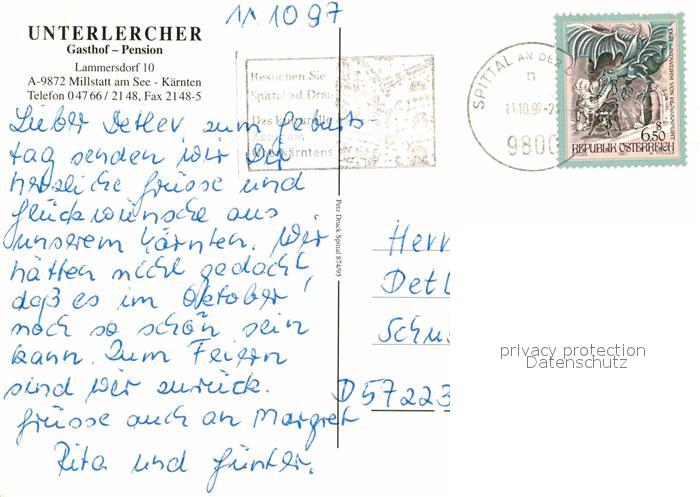 11.10.97
UNTERLERCHER
Gasthof – Pension
Lammersdorf 10
A-9872 Millstatt am See - Kärnten
Telefon 0 47 66 / 21 48, Fax 21 48-5
Besuchen Sie
Spittal ad Drau
Das kulturelle
kärntens
SPITTAL AN DE
n
11.10.97-2
9800
6.50
REPUBLIK ÖSTERREICH
Lieber Detlev, zum Geburts-
tag senden wir Dir
herzliche Grüsse und
Glückwünsche aus
unserem Kärnten. Wir
hätten nicht gedacht,
daß es im Oktober
noch so schön sein
kann. Zum Feiern
sind wir zurück.
Grüsse auch an Margret
Rita und Günter.
Petz Druck Spittal 874/95
Herr
Detl
Schu
D 57223
privacy protection
Datenschutz